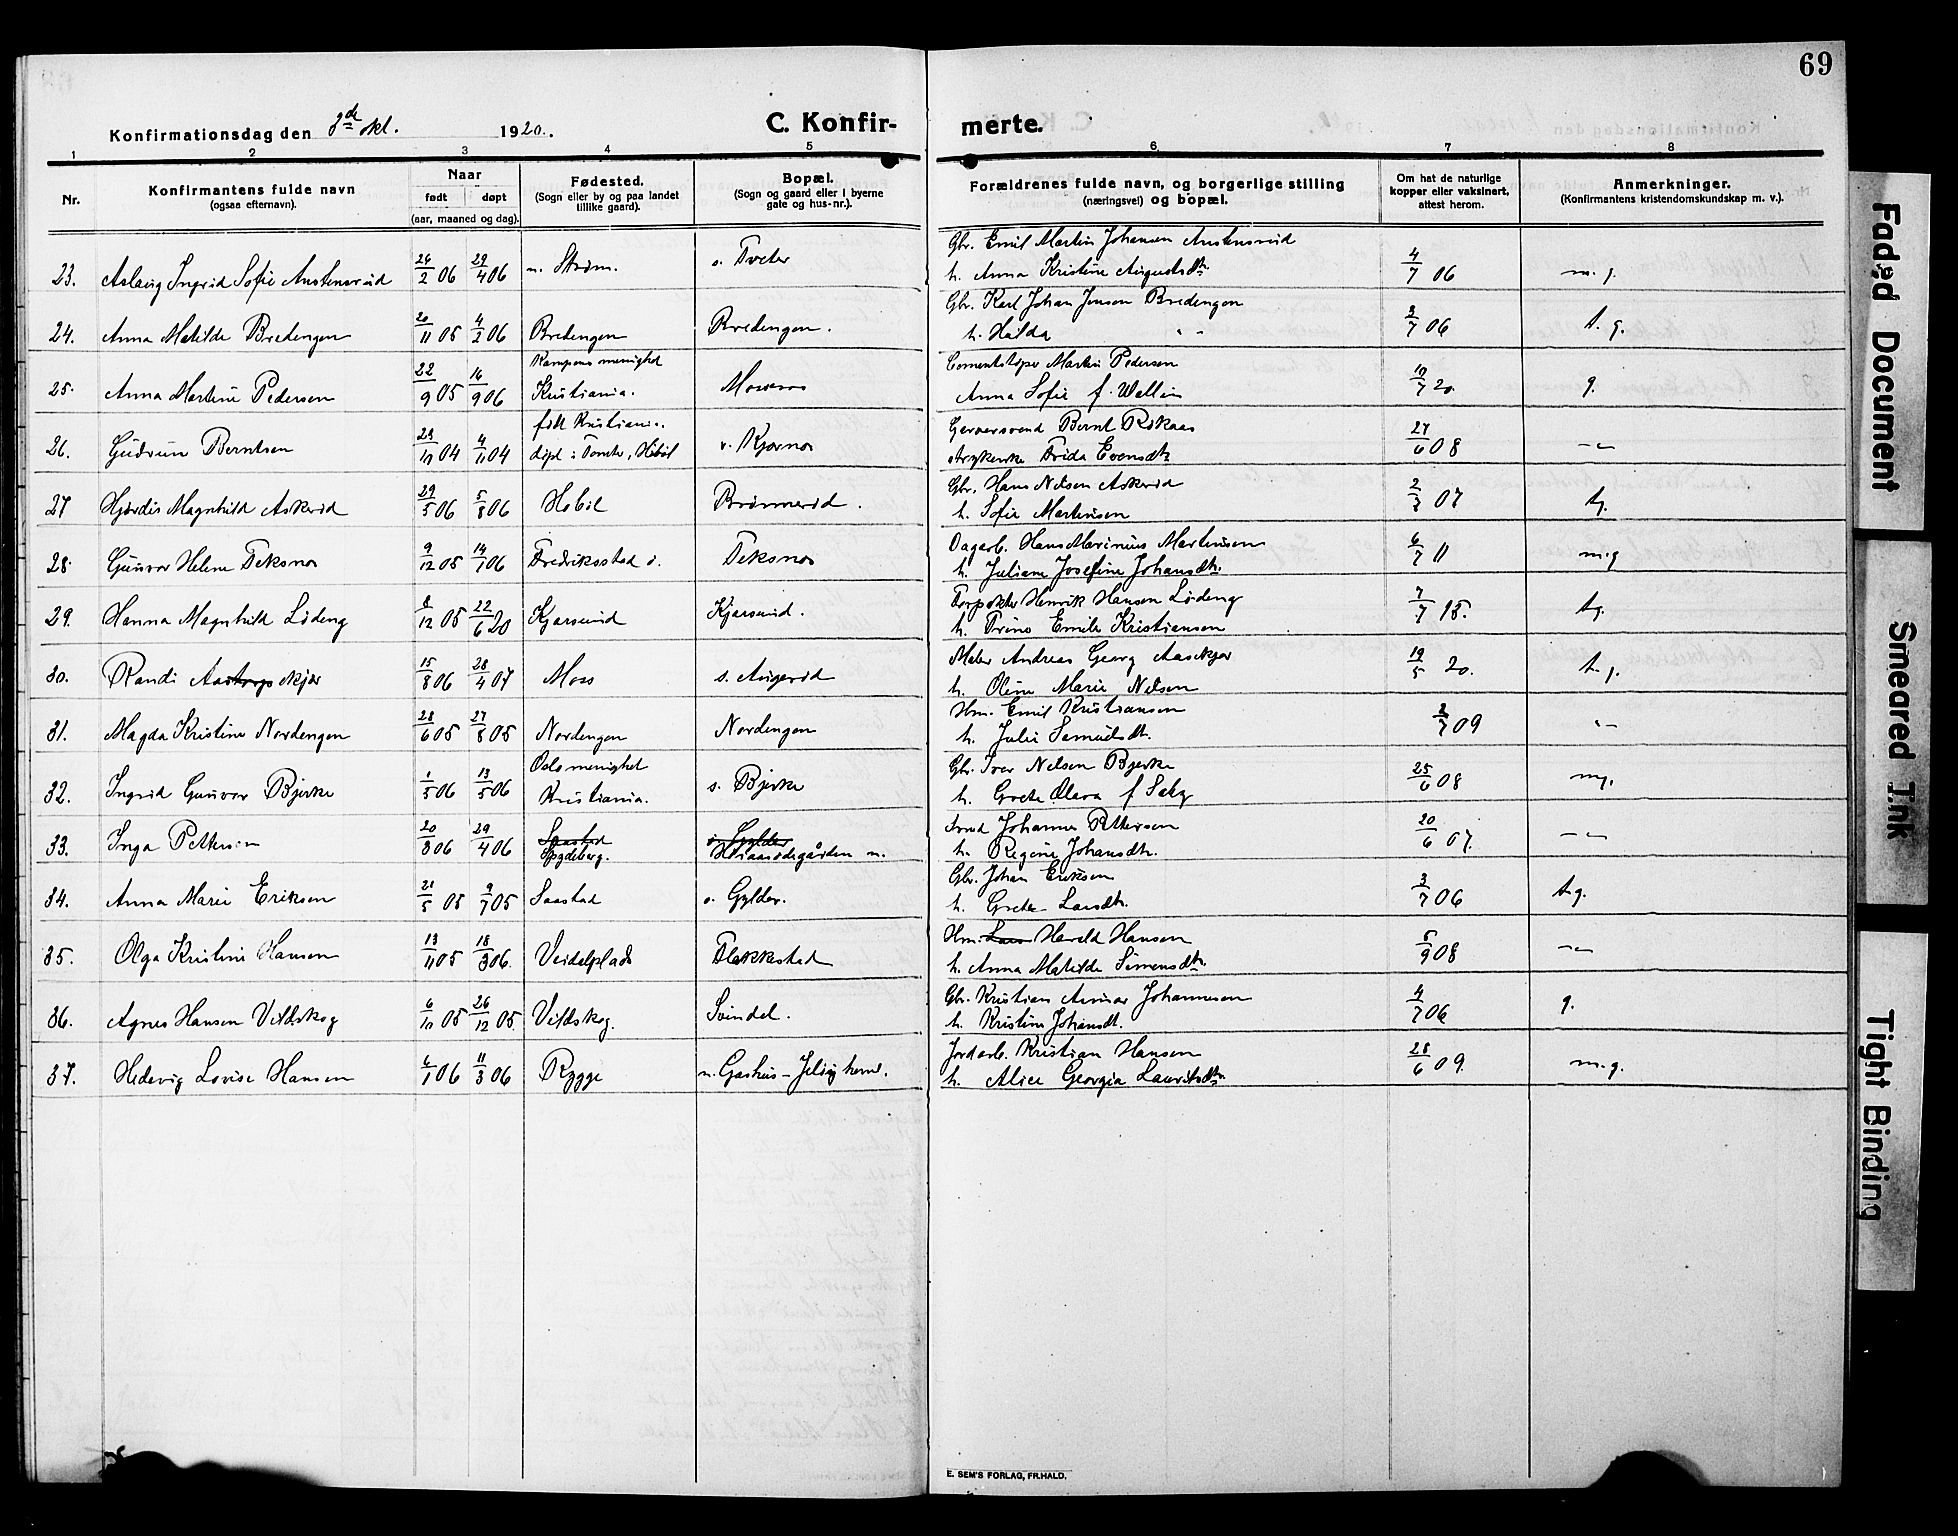 69
Konfirmationsdag den 3de okt. 1920.
C. Konfir-
merte.
1 2 3 4 5 6 7 8
Nr.
Konfirmantens fulde navn
(ogsaa efternavn).
Naar
født døpt
(aar, maaned og dag).
Fødested.
(Sogn eller by og paa landet
tillike gaard).
Bopæl.
(Sogn og gaard eller i byerne
gate og hus-nr.).
Forældrenes fulde navn, og borgerlige stilling
(næringsvei) og bopæl.
Om hat de naturlige
kopper eller vaksinert,
attest herom.
Anmerkninger.
(Konfirmantens kristendomskundskap m. v.).
Gbr. Emil Martin Johansen Austensrud
23. Aslaug Ingrid Sofie Austensrud 26/2 06 29/4 06 n. Strøm. s. Tveter h. Anna Kristine Augustsdtr. 4/7 06 m. g.
Gbr. Karl Johan Jensen Bredengen
24. Anna Matilde Bredengen 20/11 05 4/2 06 Bredengen Bredengen. h. Hilda " " 3/7 06 t. g.
Kampens menighet
Cementstøper Martin Pedersen
25. Anna Martine Pedersen 22/9 05 16/9 06 Kristiania. Mosseros Anna Sofie f. Wallin 10/7 20. g.
født Kristiania.
Garversvend Bernt Rokaas
26. Gudrun Berntsen 4/11 04 døpt i Tomter, Hobøl v. Kjærnes strykerske Frida Evensdtr. 27/6 08 -"-
Gbr. Hans Nilsen Askerød
27 Hjørdis Magnhild Askerød 29/5 06 5/8 06 Hobøl h. Sofie Martinsen 07 tg.
Dagarb. Hans Marinius Martinsen
28. Gunvor Helene Teksnes 9/12 05 14/1 06 Fredriksstad d. Teksnes h. Juliane Josefine Johansdtr. 6/7 11 m.g
Henrik Hansen Lødeng
29. Hanna Magnhild Lødeng 8/12 05 22/6 20 Kjærsund Kjærsund. h. Trine Emilie Kristiansen 7/7 15. tg.
Maler Andreas Georg Aasekjær
30. Randi Aastorpskjær 15/8 06 28/4 07 Moss s. Augerød h. Oline Marie Nilsen 19/5 20. t. g.
Hm. Emil Kristiansen
31. Magda Kristine Nordengen 28/6 05 27/8 05 Nordengen Nordengen h. Julie Samuelsdt. 2/7 09 -"-
Oslo menighet
Gbr. Iver Nilsen Bjerke
32. Ingrid Gunvor Bjerke 1/5 06 13/5 06 Kristiania. s. Bjerke h. Grete Olava f Sæby 25/6 08 mg.
Johannes Pettersen
33. Inga Pettersen 20/3 06 29/4 06 Saastad Spydeberg. ø. Gylder n. h. Regine Johansdtr. 20/6 07. -"-
Gbr. Johan Eriksen
34. Anna Marie Eriksen 21/5 05 9/7 05 Saastad ø. Gylder. h. Grete Larsdtr. 3/7 06 tg.
Hm. Lars Harald Hansen
35. Olga Kristine Hansen 13/11 05 18/3 06. Veidelplads Flakkstad h. Anna Matilde Simensdtr. 5/9 08 -"-
Gbr. Kristian Anmar Johannesen
36. Agnes Hansen Vildskog 6/10 05 26/12 05. Vildskog. Svindel. h. Kristine Johansdt. 4/7 06 g.
Jordarb. Kristian Hansen
37. Hedevig Lovise Hansen 6/1 06 11/3 06 Rygge n. Gashus - Jeløy kernd. h. Alice Georgia Lauritsdtr. 28/6 09. m.g.
E. SEM'S FORLAG, FR.HALD.
Faded Document
Smeared Ink
Tight Binding